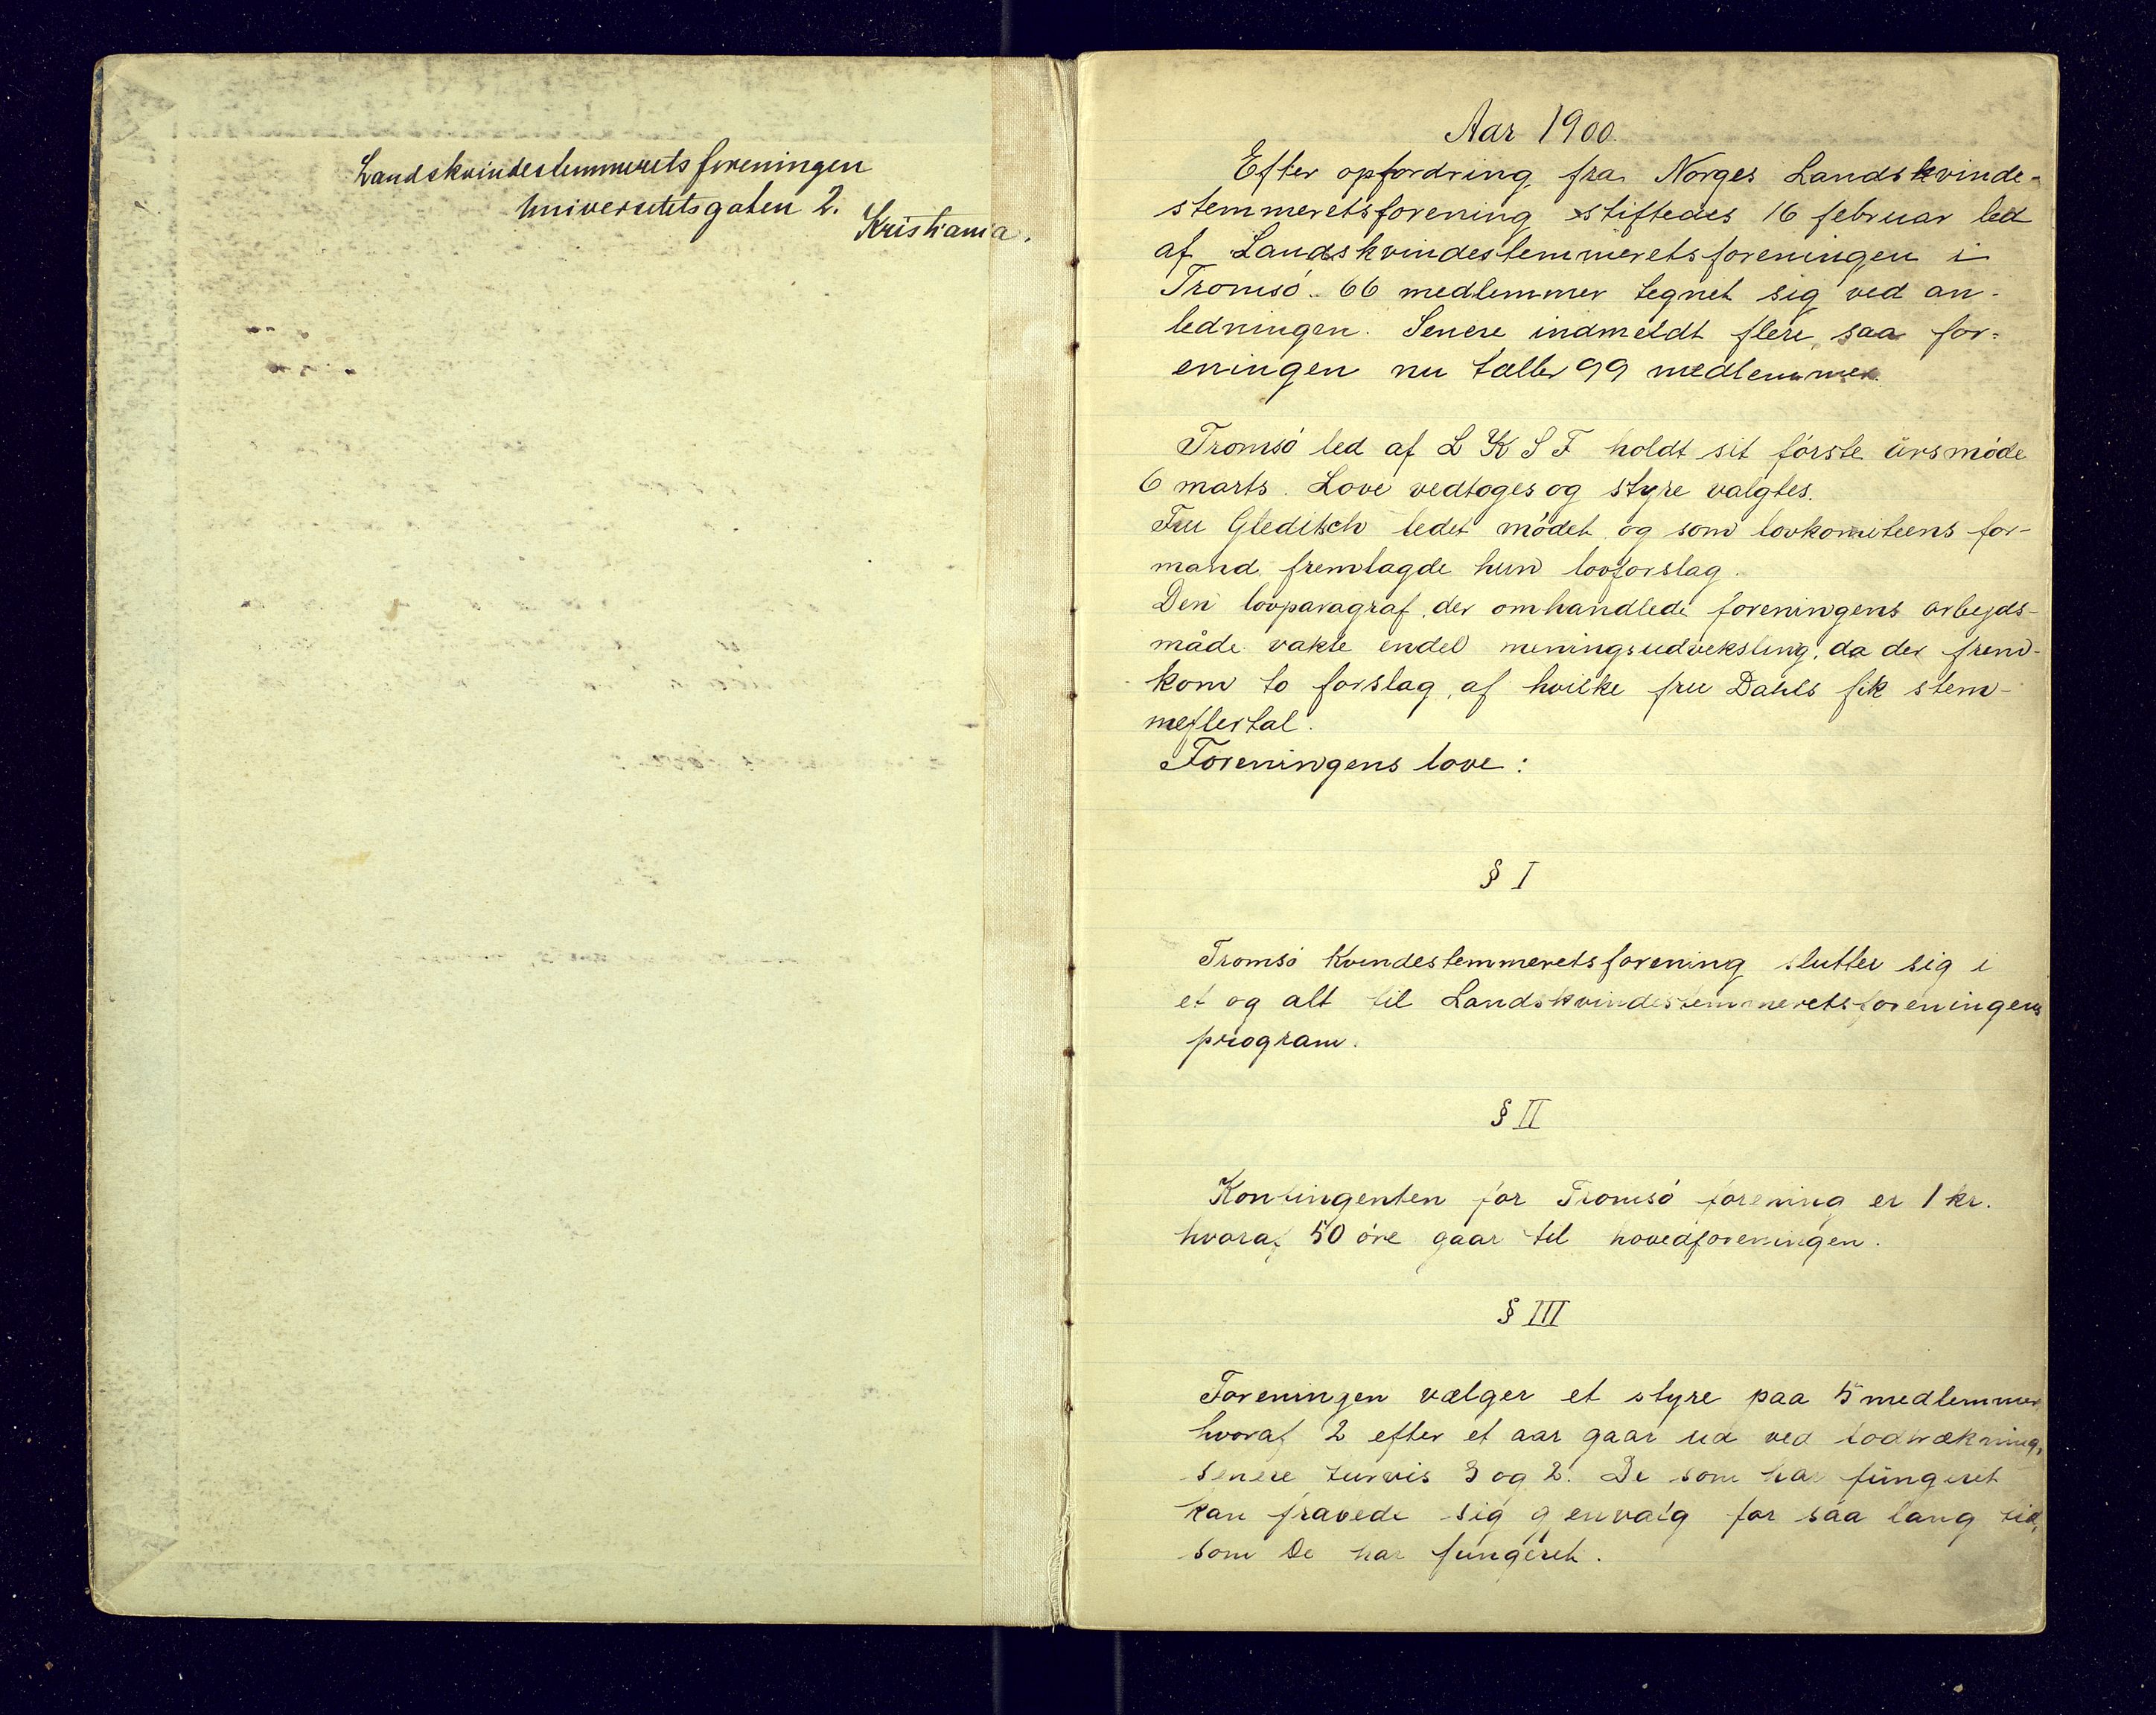 Landskvindestemmeretsforeningen
Universitetsgaten 2.
Kristiania.
Aar 1900.
Efter opfordring fra Norges Landskvinde-
stemmeretsforening stiftedes 16 februar led
af Landskvindestemmeretsforeningen i
Tromsö. 66 medlemmer tegnet sig ved an-
ledningen. Senere indmeldt flere, saa for=
eningen nu tæller 99 medlemmer.
Tromsö led af L K S F holdt sit förste årsmöde
6 marts. Love vedtoges og styre valgtes.
Fru Gleditsch ledet mödet og som lovkomiteens for-
mand fremlagde hun lovforslag.
Den lovparagraf, der omhandlede foreningens arbejds-
måde vakte endel meningsudveksling, da der frem-
kom to forslag, af hvilke fru Dahls fik stem-
meflertal.
Foreningens love:
§ I
Tromsö Kvindestemmeretsforening slutter sig i
et og alt til Landskvindestemmeretsforeningens
program.
§ II
Kontingenten for Tromsö forening er 1 kr.
hvoraf 50 öre gaar til hovedforeningen.
§ III
Foreningen vælger et styre paa 5 medlemmer
hvoraf 2 efter et aar gaar ud ved lodtrækning,
senere turvis 3 og 2. De som har fungeret
kan fravede sig genvalg for saa lang tid,
som De har fungeret.